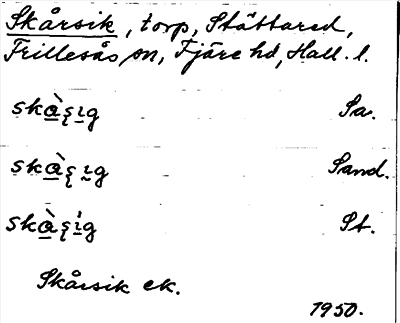 Skårsik, torp, Stättared,
Frillesås sn, Fjäre hd, Hall. l.
skàşig Sa.
skàşig Sand.
skàşig St.
Skårsik ek.
1950.